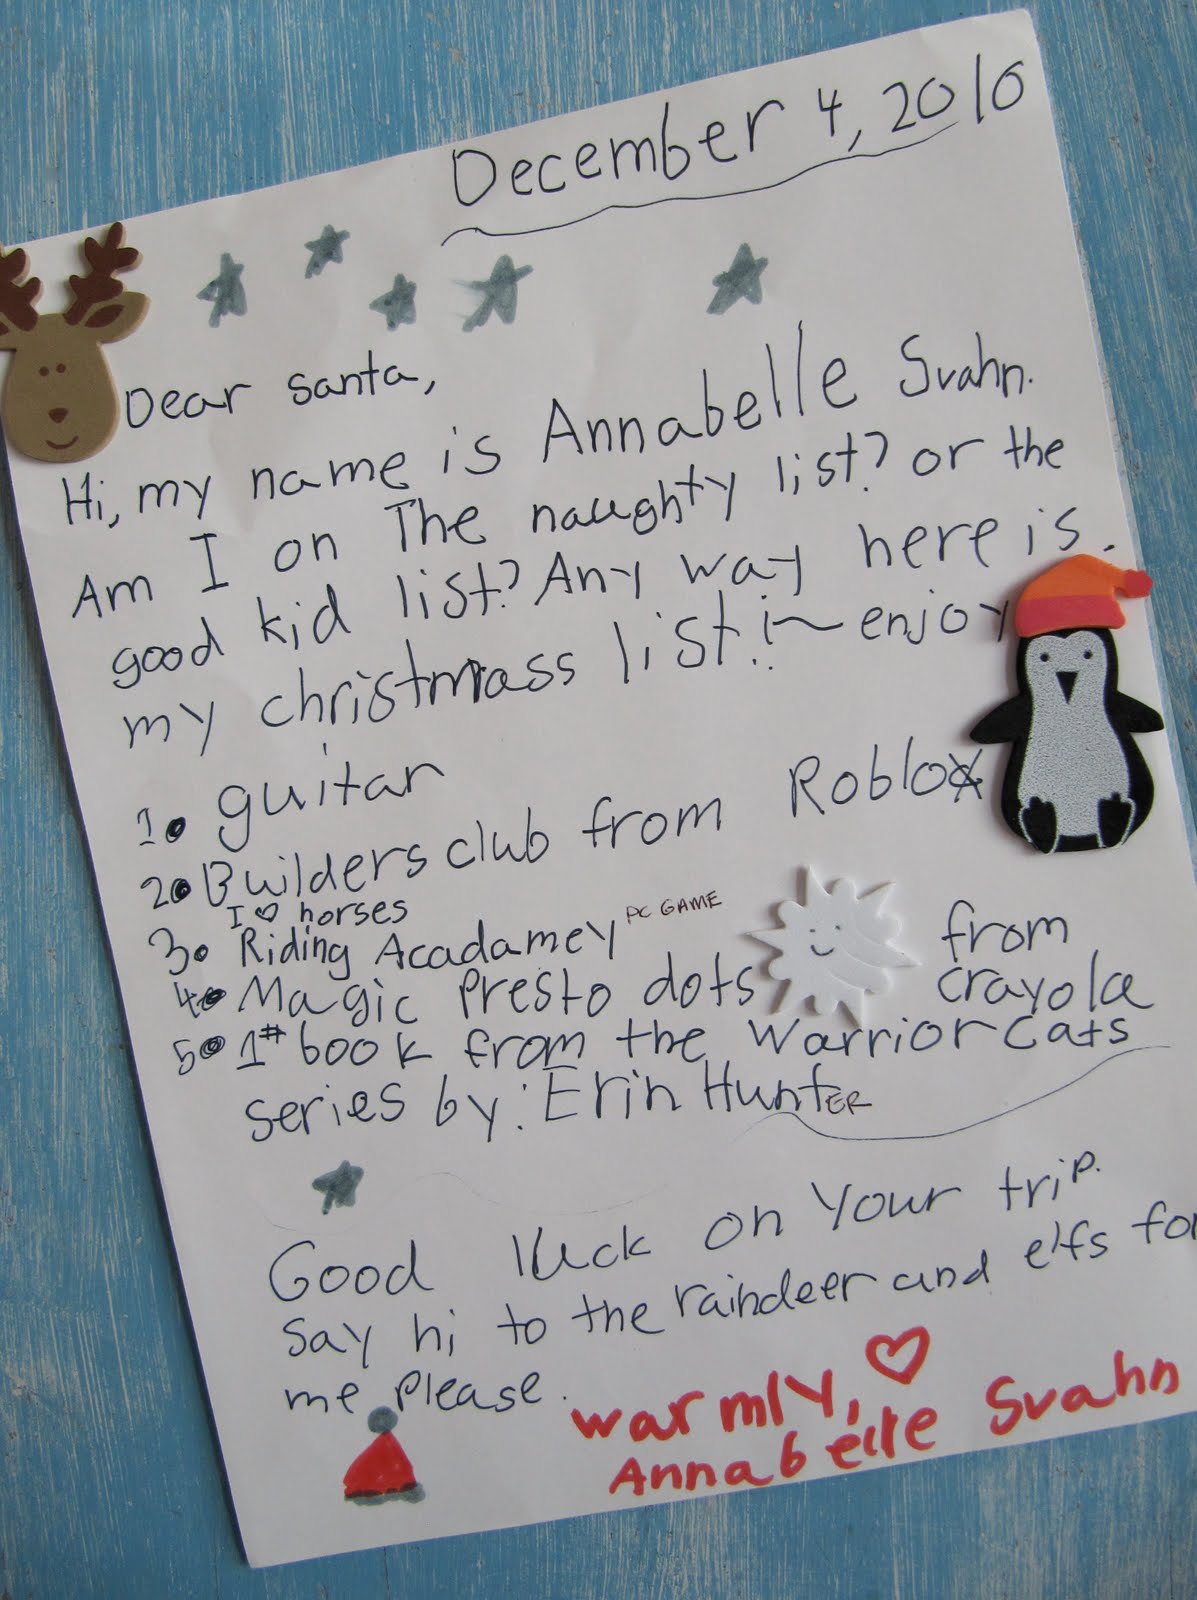 December 4, 2010
Dear santa,
Hi, my name is Annabelle Svahn.
Am I on The naughty list? or the
good kid list? Any way here is
my christmass list! ~ enjoy
1. guitar
2. Builders club from Roblox
I ♡ horses
3. Riding Acadamey PC GAME
4. Magic Presto dots from crayola
5. 1# book from the Warrior cats
series by: Erin HuntER
Good luck on Your trip.
Say hi to the raindeer and elfs for
me Please.
warmly, ♡
Annabelle Svahn